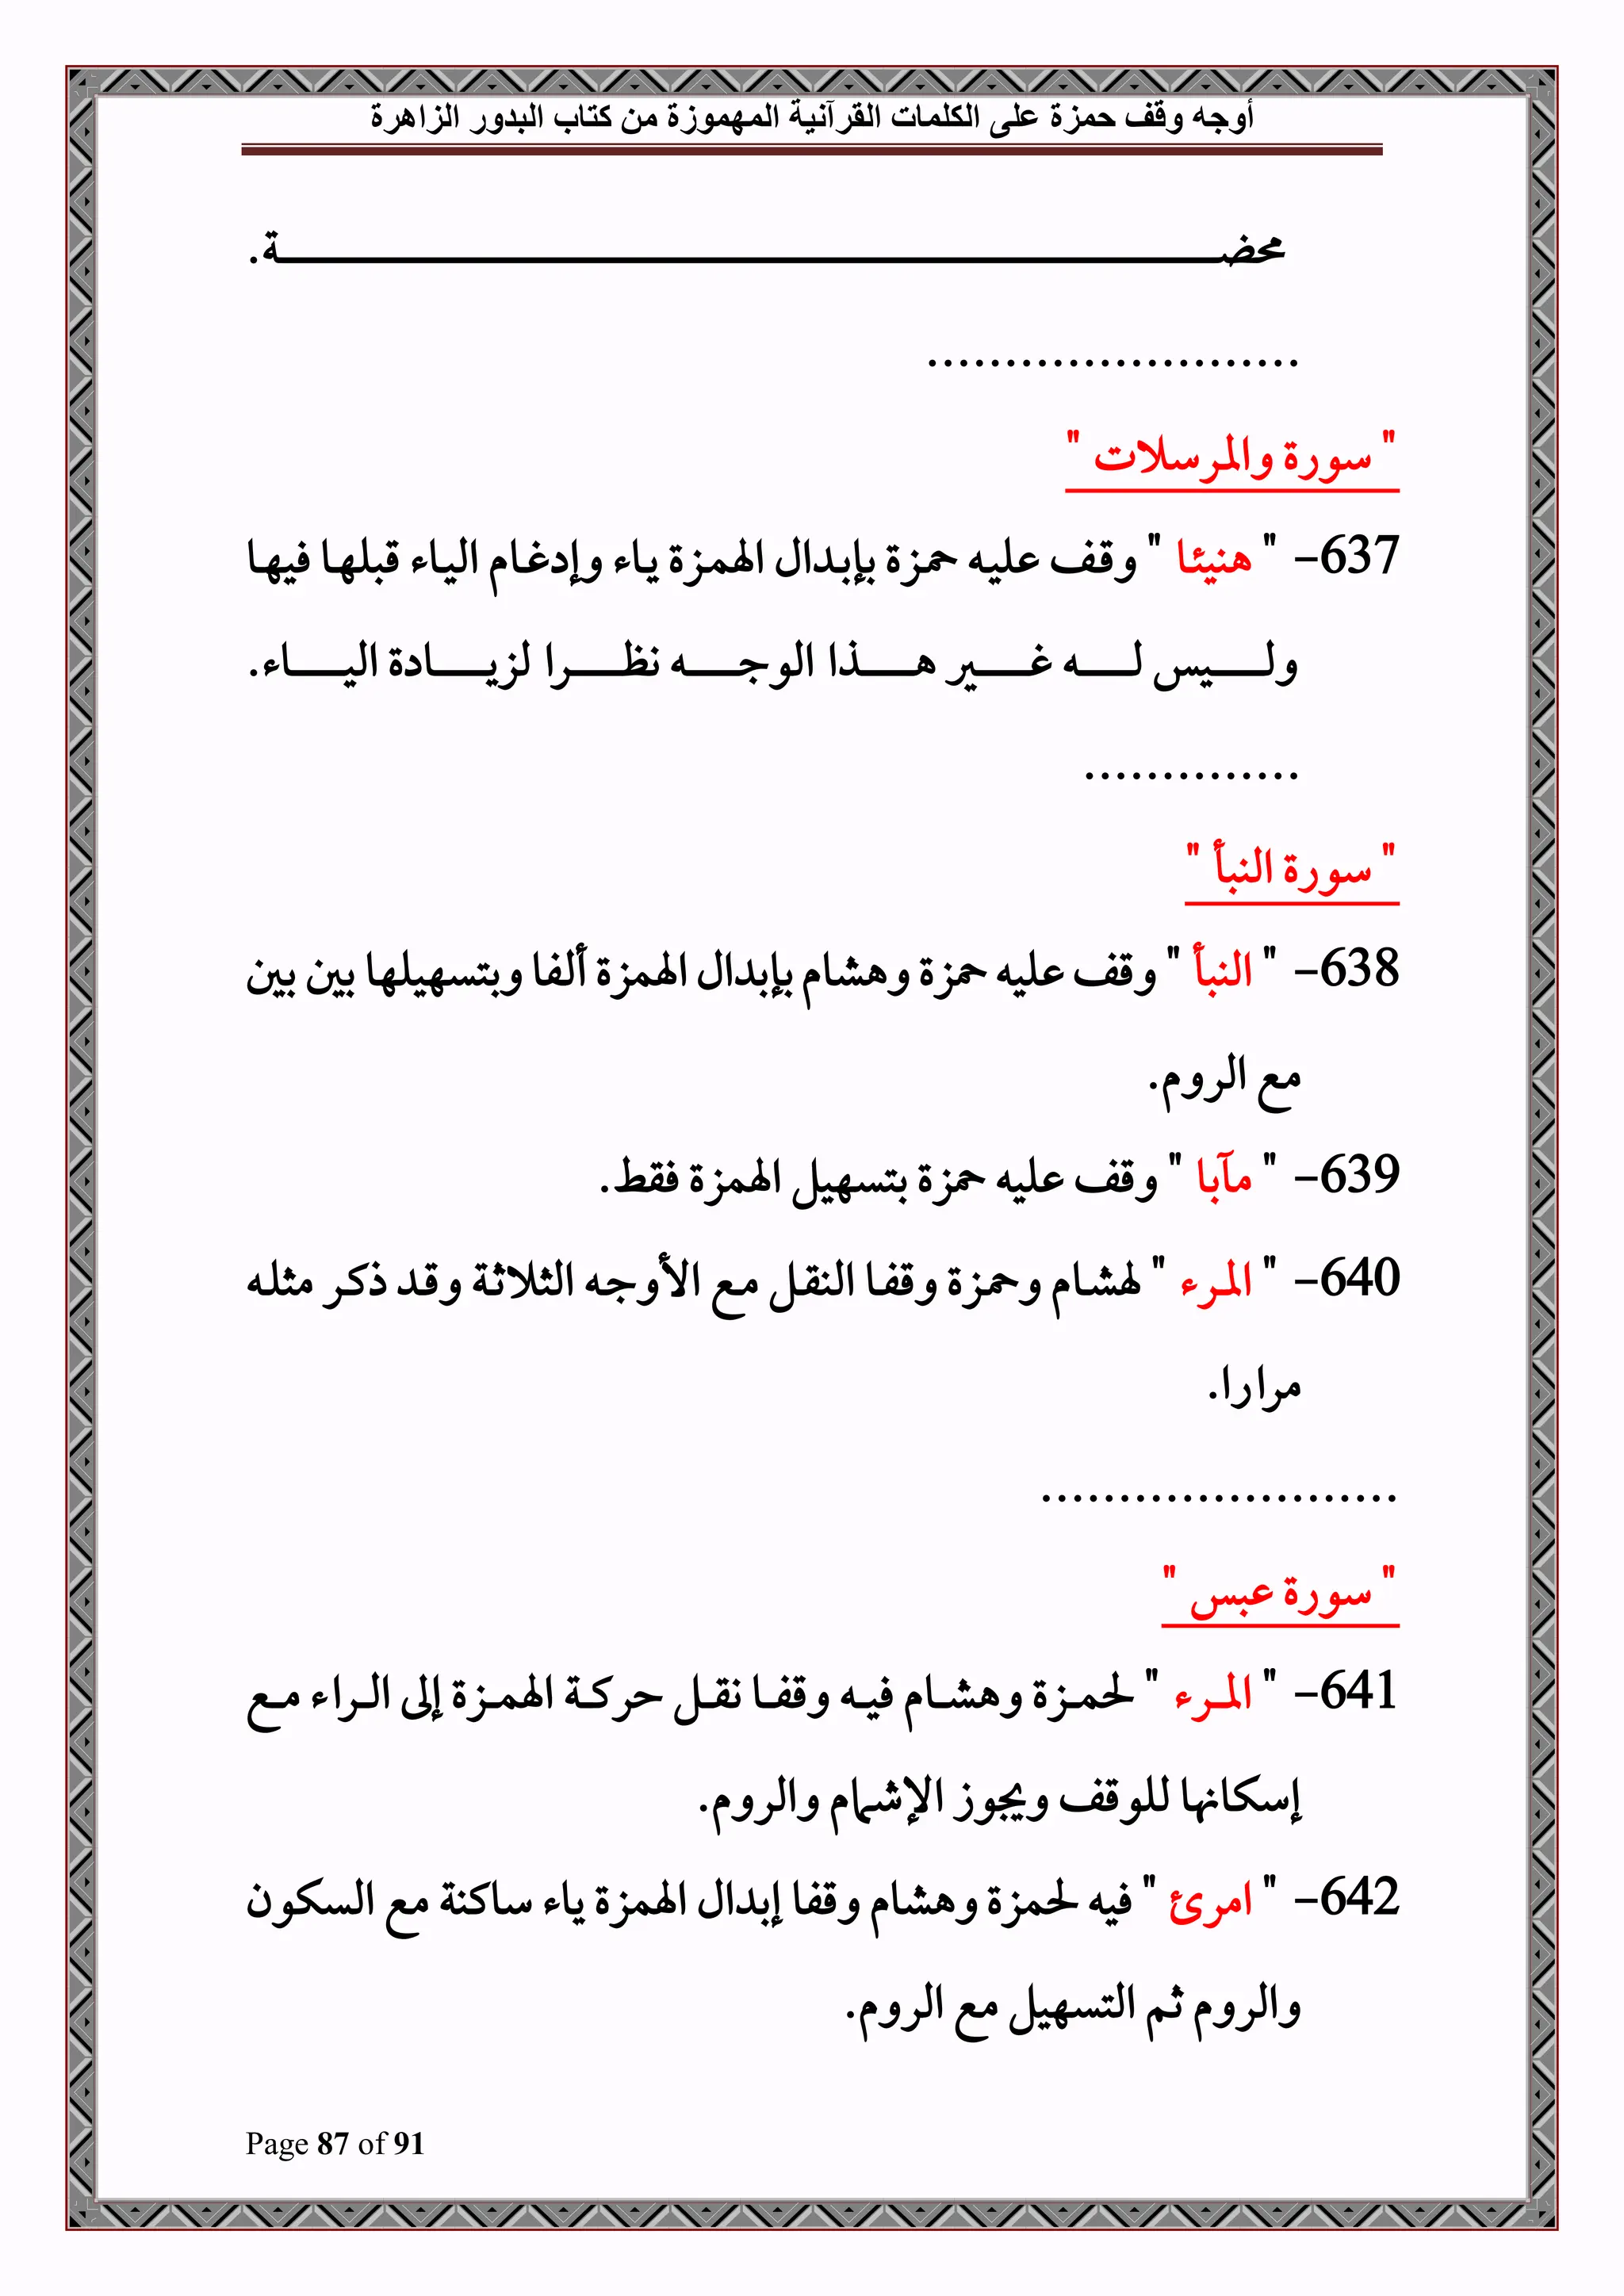 أوجه وقف حمزة على الكلمات القرآنية المهموزة من كتاب البدور الزاهرة
محضة.
........................
" سورة والمرسلات "
637- " هنيئا " وقف عليه حمزة بإبدال الهمزة ياء وإدغام الياء قبلها فيها
وليس له غير هذا الوجه نظرا لزيادة الياء.
..............
" سورة النبأ "
638- " النبأ " وقف عليه حمزة وهشام بإبدال الهمزة ألفا وبتسهيلها بين بين
مع الروم.
639- " مآبا " وقف عليه حمزة بتسهيل الهمزة فقط.
640- " المرء " لهشام وحمزة وقفا النقل مع الأوجه الثلاثة وقد ذكر مثله
مرارا.
.......................
" سورة عبس "
641- " المرء " لحمزة وهشام فيه وقفا نقل حركة الهمزة إلى الراء مع
إسكانها للوقف ويجوز الإشمام والروم.
642- " امرئ " فيه لحمزة وهشام وقفا إبدال الهمزة ياء ساكنة مع السكون
والروم ثم التسهيل مع الروم.
Page 87 of 91